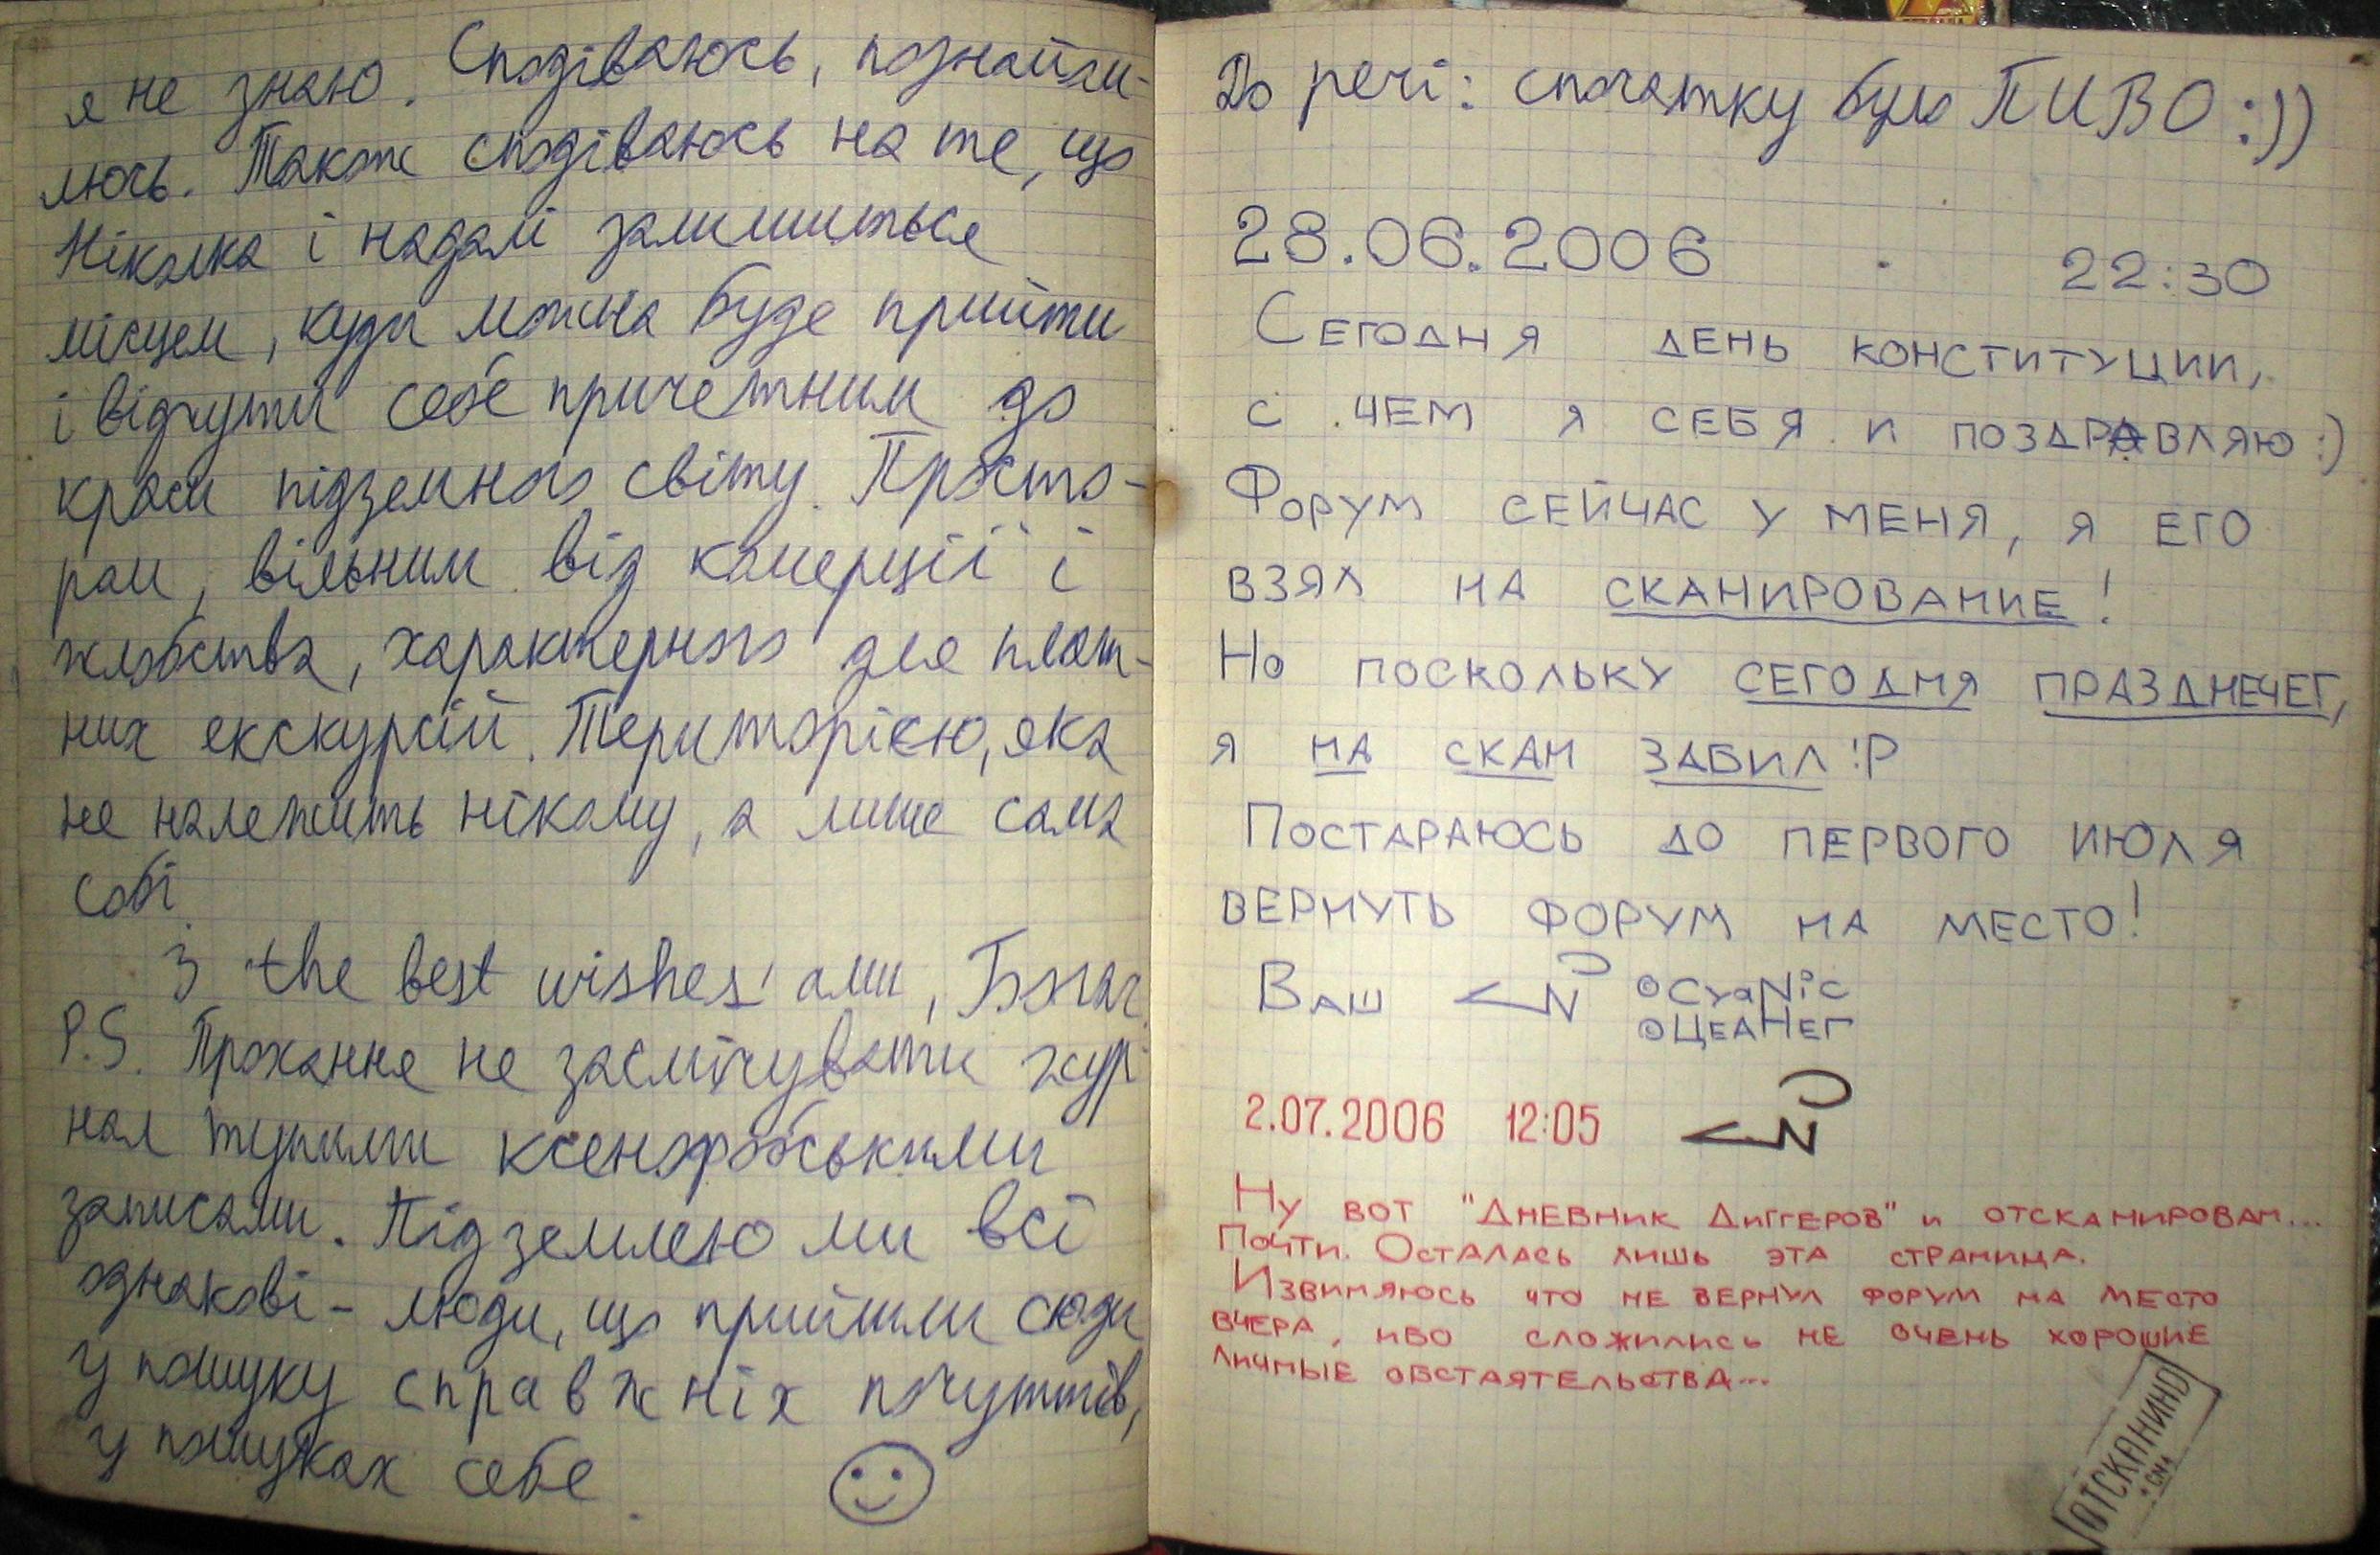 я не знаю. Сподіваюсь, познайом-
люсь. Також сподіваюсь на те, що
Ніколка і надалі залишиться
місцем, куди можна буде прийти
і відчути себе причетним до
краси підземного світу. Просто-
рам, вільним від комерції і
жлобства, характерного для плат-
них екскурсій. Територією, яка
не належить нікому, а лише сама
собі.
З the best wishes'ами, Богдан
P.S. Прохання не засмічувати жур-
нал тупими ксенофобськими
записами. Під землею ми всі
однакові - люди, що прийшли сюди
у пошуку справжніх почуттів,
у пошуках себе.
До речі: спочатку було ПИВО :))
28.06.2006 22:30
Сегодня день конституции,
с чем я себя и поздравляю :)
Форум сейчас у меня, я его
взял на сканирование!
Но поскольку сегодня празднечег,
я на скан забил :P
Постараюсь до первого июля
вернуть форум на место!
Ваш
CyaNiC
ЦеаНег
2.07.2006 12:05
Ну вот "Дневник Диггеров" и отсканирован...
Почти. Осталась лишь эта страница.
Извиняюсь что не вернул форум на место
вчера, ибо сложились не очень хорошие
личные обстаятельства...
ОТСКАНИНО